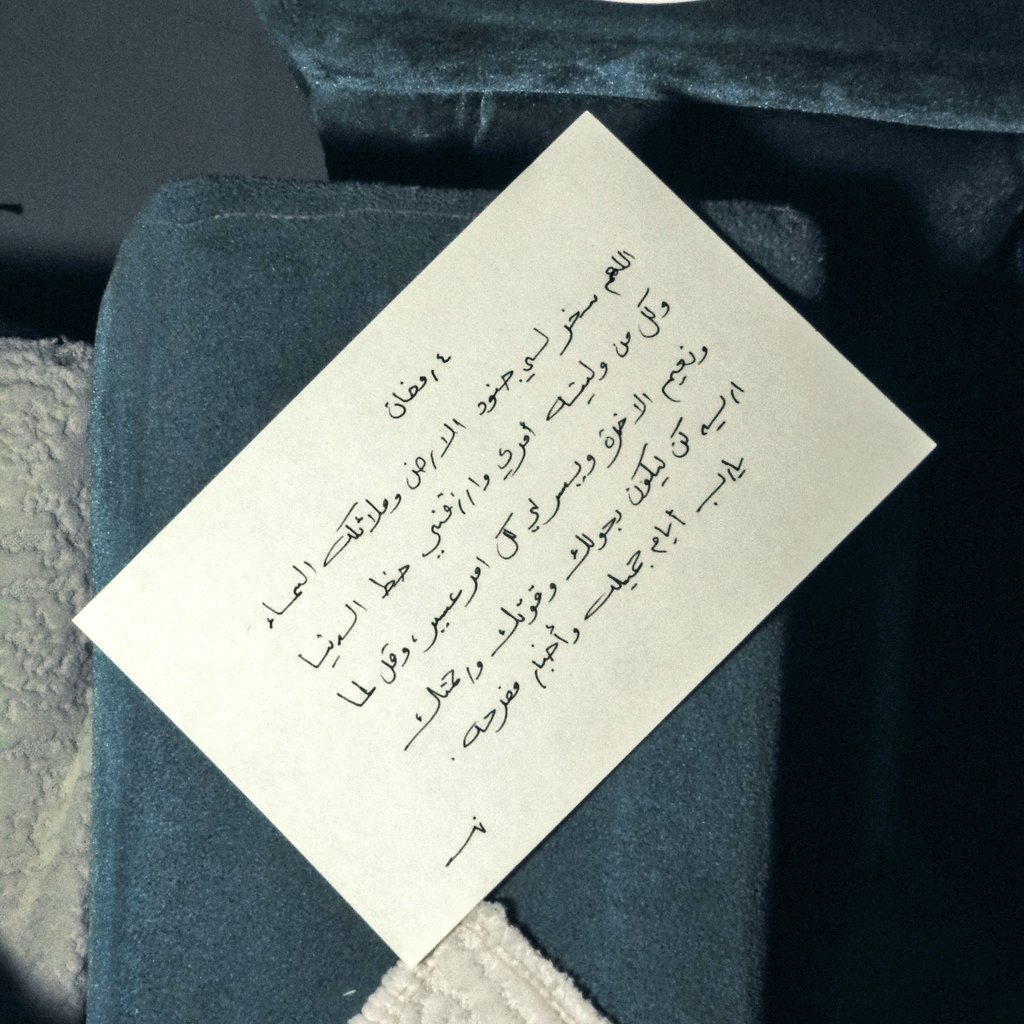 ٤ رمضان
اللهم سخر لي جنود الارض وملائكة السماء
وكل من وليته أمري وارزقني حظ الدنيا
ونعيم الاخرة ويسر لي كل امر عسير، وقل لما
اريد كن فيكون بحولك وقوتك ورحمتك
يارب أيام جميله وأخبار مفرحه.